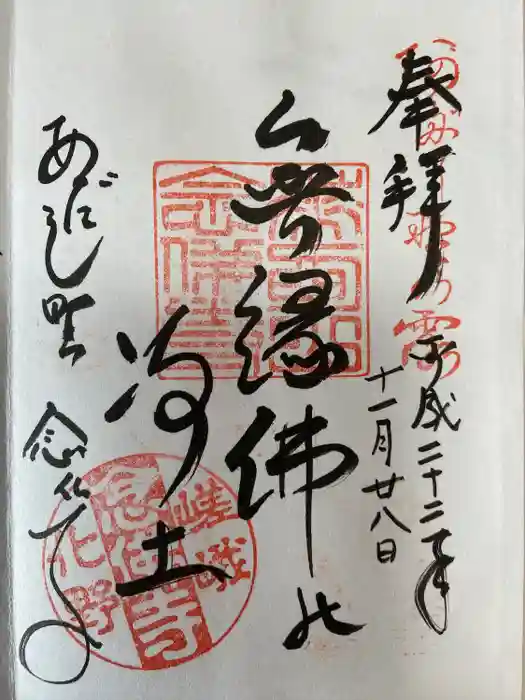 奉拝
平成二十二年
十一月廿八日
無縁佛
浄土
あだし野 念仏寺
嵯峨
念佛寺
化野